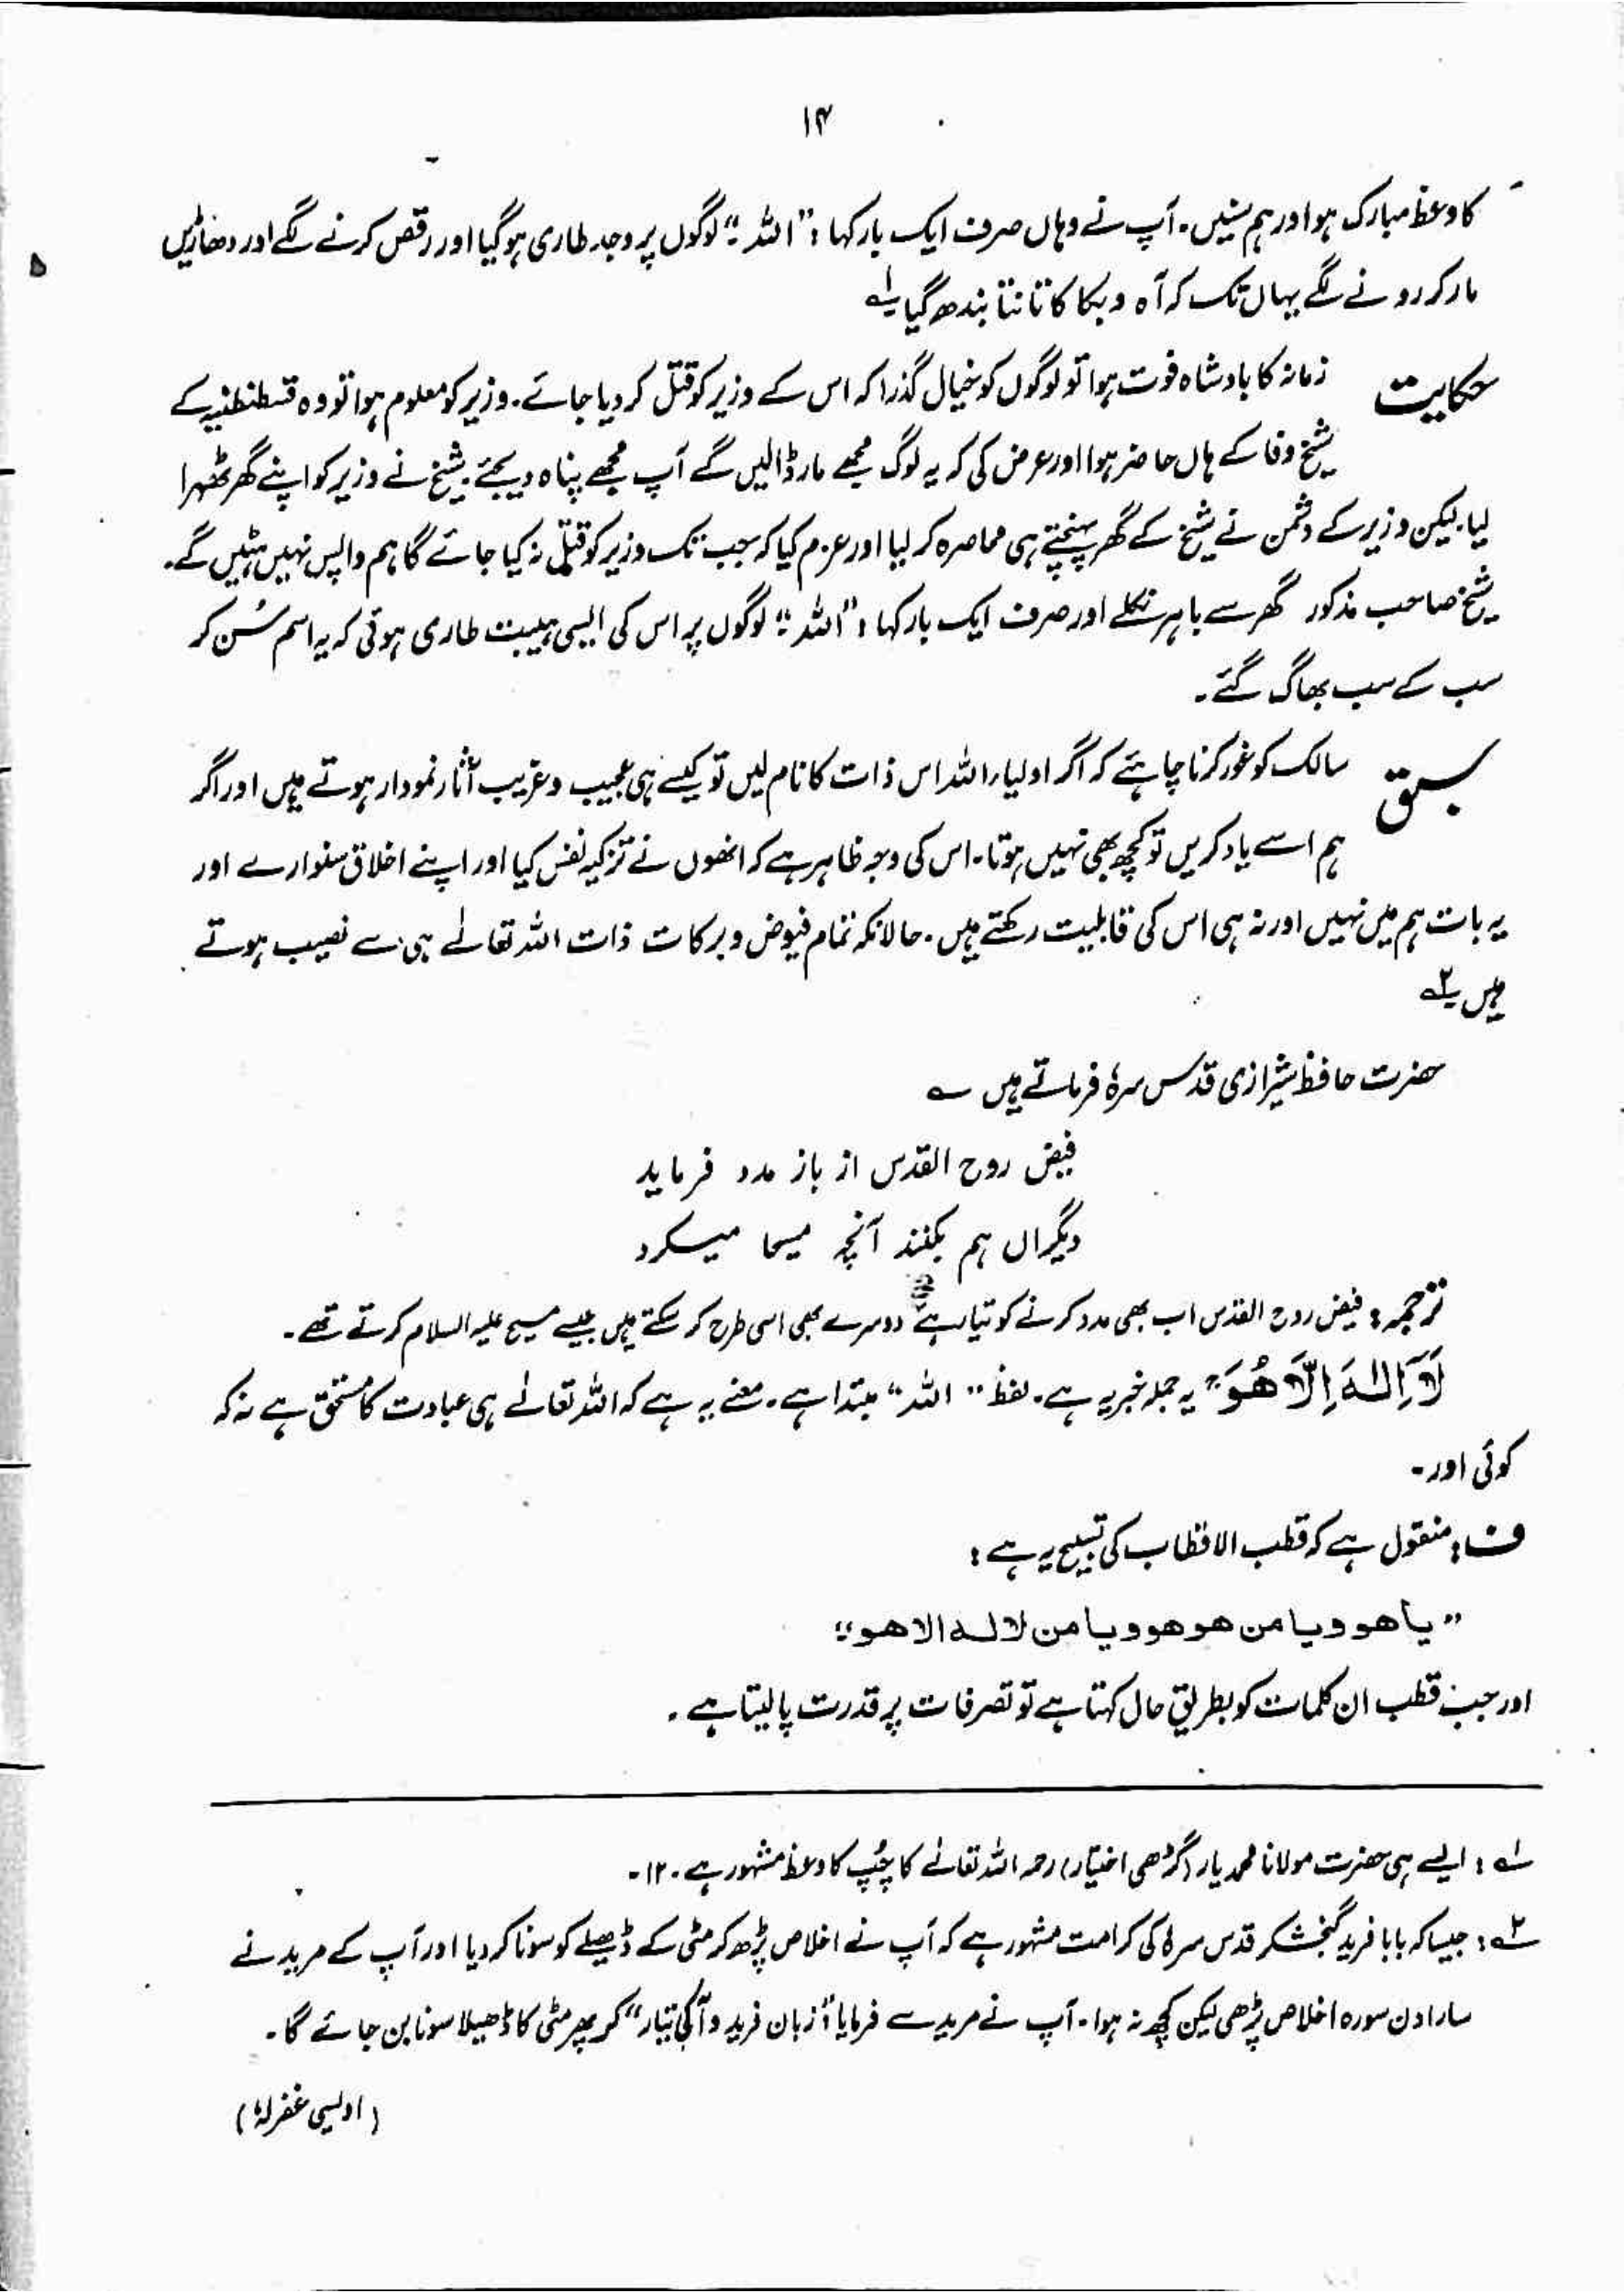 ۱۴
کا وعظ مبارک ہو اور ہم سنیں۔ آپ نے وہاں صرف ایک بار کہا: "اللہ"؛ لوگوں پر وجد طاری ہوگیا اور رقص کرنے لگے اور دھاڑیں
مار کر رونے لگے یہاں تک کہ آہ و بکا کا تانتا بندھ گیا۔ ؎۱
حکایت زمانہ کا بادشاہ فوت ہوا تو لوگوں کو خیال گذرا کہ اس کے وزیر کو قتل کر دیا جائے۔ وزیر کو معلوم ہوا تو وہ قسطنطنیہ کے
شیخ وفا کے ہاں حاضر ہوا اور عرض کی کہ یہ لوگ مجھے مار ڈالیں گے آپ مجھے پناہ دیجئے۔ شیخ نے وزیر کو اپنے گھر ٹھہرا
لیا۔ لیکن وزیر کے دشمن نے شیخ کے گھر پہنچتے ہی محاصرہ کر لیا اور عزم کیا کہ جب تک وزیر کو قتل نہ کیا جائے گا ہم واپس نہیں ہٹیں گے۔
شیخ صاحب مذکور گھر سے باہر نکلے اور صرف ایک بار کہا: "اللہ"؛ لوگوں پر اس کی ایسی ہیبت طاری ہوئی کہ یہ اسم سُن کر
سب کے سب بھاگ گئے۔
سبق سالک کو غور کرنا چاہئے کہ اگر اولیاء اللہ اس ذات کا نام لیں تو کیسے ہی عجیب و غریب آثار نمودار ہوتے ہیں اور اگر
ہم اسے یاد کریں تو کچھ بھی نہیں ہوتا۔ اس کی وجہ ظاہر ہے کہ انھوں نے تزکیہ نفس کیا اور اپنے اخلاق سنوارے اور
یہ بات ہم میں نہیں اور نہ ہی اس کی قابلیت رکھتے ہیں۔ حالانکہ تمام فیوض و برکات ذات اللہ تعالٰے ہی سے نصیب ہوتے
ہیں۔ ؎۲
حضرت حافظ شیرازی قدس سرہٗ فرماتے ہیں ؎
فیض روح القدس از باز مدد فرماید
دیگراں ہم بکنند آنچہ مسیحا میکرد
ترجمہ: فیض روح القدس اب بھی مدد کرنے کو تیار ہے دوسرے بھی اسی طرح کر سکتے ہیں جیسے مسیح علیہ السلام کرتے تھے۔
لَآ اِلٰهَ اِلَّا هُوَ ج یہ جملہ خبریہ ہے۔ لفظ "اللہ" مبتدا ہے۔ معنے یہ ہے کہ اللہ تعالٰے ہی عبادت کا مستحق ہے نہ کہ
کوئی اور۔
ف: منقول ہے کہ قطب الاقطاب کی تسبیح یہ ہے:
"یا ھو و یا من ھو ھو و یا من لا لہ الا ھو"؛
اور جب قطب ان کلمات کو بطریق حال کہتا ہے تو تصرفات پر قدرت پا لیتا ہے۔
؎۱: ایسے ہی حضرت مولانا محمد یار (گڑھی اختیار) رحمہ اللہ تعالٰے کا چُپ کا وعظ مشہور ہے۔ ۱۲۔
؎۲: جیسا کہ بابا فرید گنجشکر قدس سرہٗ کی کرامت مشہور ہے کہ آپ نے اخلاص پڑھ کر مٹی کے ڈھیلے کو سونا کر دیا اور آپ کے مرید نے
سارا دن سورہ اخلاص پڑھی لیکن کچھ نہ ہوا۔ آپ نے مرید سے فرمایا "زبان فرید و آکی تیار" کر پھر مٹی کا ڈھیلا سونا بن جائے گا۔
(اویسی غفرلہٗ)